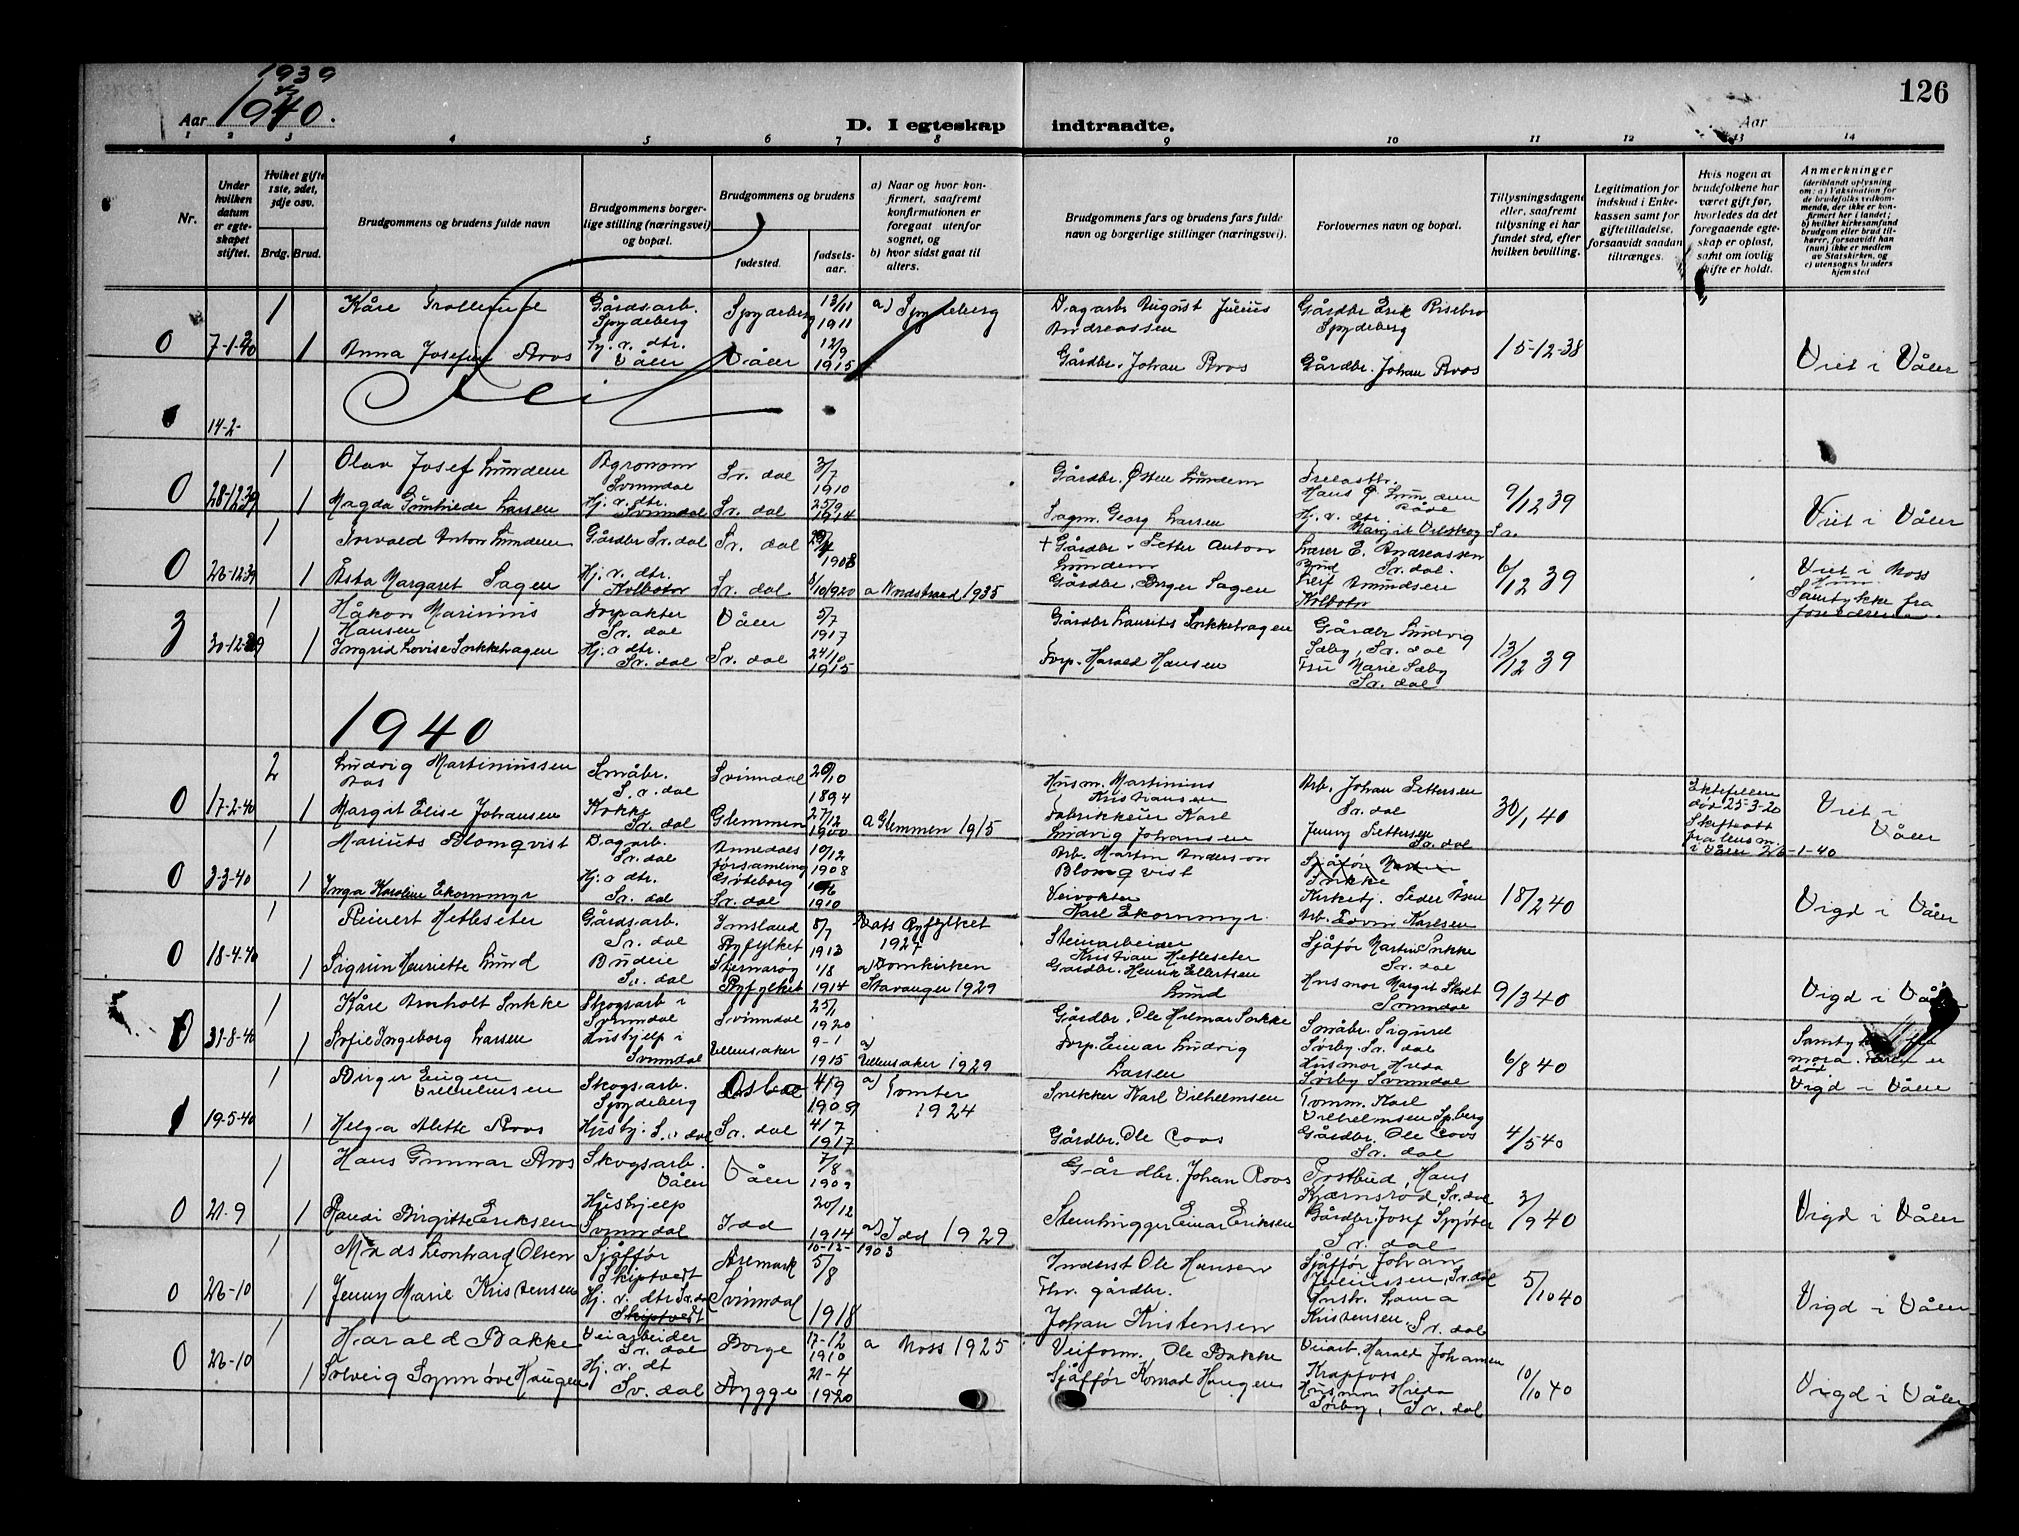 1939
1940.
126
Aar
D. I egteskap indtraadte.
Aar
1 2 3 4 5 6 7 8 9 10 11 12 13 14
Nr.
Under hvilken datum er egteskapet stiftet.
Hvilket gifte 1ste, 2det, 3dje osv.
Brdg. Brud.
Brudgommens og brudens fulde navn
Brudgommens borgerlige stilling (næringsvei) og bopæl.
Brudgommens og brudens
fødested. fødselsaar.
a) Naar og hvor konfirmert, saafremt konfirmationen er foregaat utenfor sognet, og
b) hvor sidst gaat til alters.
Brudgommens fars og brudens fars fulde navn og borgerlige stillinger (næringsvei).
Forlovernes navn og bopæl.
Tillysningsdagene eller, saafremt tillysning ei har fundet sted, efter hvilken bevilling.
Legitimation for indskud i Enkekassen samt for giftetilladelse, forsaavidt saadan tiltrænges.
Hvis nogen at brudefolkene har været gift før, hvorledes da det foregaaende egteskap er opløst, samt om lovlig skifte er holdt.
Anmerkninger
(deriblandt oplysning om: a) Vaksination for de brudefolks vedkommende, der ikke er konfirmert her i landet; b) hvilket kirkesamfund brudgom eller brud tilhører, forsaavidt han (hun) ikke er medlem av Statskirken, og c) utensogns bruders hjemsted
1 Kåre Trollerud Gårdsarb. Spydeberg Spydeberg 13/11 1911 a) Spydeberg Dagarb August Julius Andreassen Gårdbr Erik Risebro Spydeberg
0 7-1-40 1 Anna Josefine Roos Hj. v. dtr. Våler Våler 12/9 1915 Gårdbr. Johan Roos Gårdbr. Johan Roos 15-12-38 Viet i Våler
Feil
14-2-
1 Olav Josef Lundem Agronom Svinndal Sv. dal 3/7 1910 Gårdbr. Østen Lundem Hans Ø Lundem Råde
0 28-12-39 1 Magda Gunhilde Larsen Hj. v. dtr. Svinndal Sv. dal 25/9 1914 Sagm. Georg Larsen Hj. v. dtr. Margit Sv. 9/12 39 Viet i Våler
1 Torvald Anton Lundem Gårdbr Sv. dal Sv. dal 1908 + Gårdbr. Petter Anton Lundem Lærer E. Andreassen Sv. dal.
0 26-12-39 1 Åsta Margaret Sagen Hj. v. dtr. Kolbotn Sv. dal 8/10 1920 a Nordstrand 1935 Gårdbr. Birger Sagen Leif Amundsen Kolbotn 6/12 39 Viet i Moss Samtykke fra foreldrene.
1 Håkon Marinius Hansen Forpakter Sv. dal Våler 5/7 1917 Gårdbr Laurits Snikkehagen Gårdbr Ludvig Sæby, Sv. dal
3 30-12-39 1 Ingrid Lovise Snikkehagen Hj. v dtr. Sv. dal Sv. dal 24/10 1915 Forp. Harald Hansen Fru Marie Sæby Sv. dal 13/12 39
1940
2 Ludvig Martiniussen Aas Småbr. Sv. dal Svinndal 1894 Husm. Martinius Kristiansen Arb. Johan Pettersen Sv. dal
0 17-2-40 1 Margit Elise Johansen Kokke Sv. dal Glemmen 27/12 1900 a Glemmen 1915 Fabrikkeier Karl Ludvig Johansen Jenny Pettersen Sv. dal 30/1 40 Ektefellen død 25-3-20 Skifteatt fra lensm. i Våler 26-1-40 Viet i Våler
1 Marius Blomqvist Dagarb. Sv. dal Annedals forsamling Gøteborg 10/12 1908 Arb. Martin Andersson Blomqvist
0 3-3-40 1 Inga Karoline Ekornmyr Hj. v dtr. Sv. dal Sv. dal 1910 Veivokter Karl Ekornmyr. Kirketj. Peder Åsen Arb. Edvin Karlsen 18/2 40 Vigd i Våler
1 Reinert Hetleseter Gårdsarb. Sv. dal Imsland Ryfylket 8/7 1913 Vats Ryfylket 1927 Steinarbeider Kristian Hetleseter Sjåfør Martin Snikke Sv. dal
0 18-4-40 1 Sigrun Henriette Lund Budeie Sv. dal Stjernarøy Ryfylket 1/8 1914 a) Domkirken Stavanger 1929 Gårdbr. Henrik Ellertsen Lund Husmor Margit Skolt Svinndal 9/3 40 Vigd i Våler
1 Kåre Arnholt Snikke Skogsarb i Svinndal Svinndal 25/1 1920 Gårdbr. Ole Hilmar Snikke Småbr. Sigurd Sørby Sv. dal
31-8-40 1 Sofie Ingeborg Larsen Hushjelp i Svinndal Ullensaker 9-1 1915 a) Ullensaker 1929 Forp. Einar Ludvig Larsen Husmor Hilda Sørby Svinndal 6/8 40 mora. Faren er død Vigd i Våler
1 Birger Eugen Vilhelmsen Skogsarb. Spydeberg 4/9 a) Tomter 1924 Snekker Karl Vilhelmsen Tomm. Karl Vilhelmsen Spberg
1 19-5-40 1 Helga Alette Roos Hushj. Sv dal Sv. dal 4/7 1917 Gårdbr. Ole Roos Gårdbr. Ole Roos Sv. dal 4/5 40
1 Hans Gunnar Roos Skogsarb. Våler Våler 7/8 1909 Gårdbr. Johan Roos Postbud, Hans Kjærnsrød, Sv. dal
0 21-9 1 Randi Birgitte Eriksen Hushjelp Svinndal Idd 20/12 1914 a) Idd 1929 Stenhugger Einar Eriksen Gårdbr. Josef Sv. dal 3/9 40 Vigd i Våler
1 Mads Leonhard Olsen Sjåffør Skiptvedt Aremark 10-12-1903 Inderst Ole Hansen Sjåffør Johan Juliussen, Sv. dal
0 26-10 1 Jenny Marie Kristensen Hj. v. dtr Sv. dal Skiptvedt Svinndal 5/8 1918 Fhv. gårdbr. Johan Kristensen Hustr. Laura Kristensen, Sv. dal 5/10 40 Vigd i Våler
1 Harald Bakke Veiarbeider Sv. dal Borge 17-12 1910 a Moss 1925 Veiform. Ole Bakke Veiarb. Harald Johansen Krapfoss
0 26-10 1 Solveig Synnøve Haugen Hj. v. dt Sv. dal Rygge 21-4 1920 Sjåffør Konrad Haugen Husmor Hilda Sørby, Sv. dal 10/10 40 Vigd i Våler